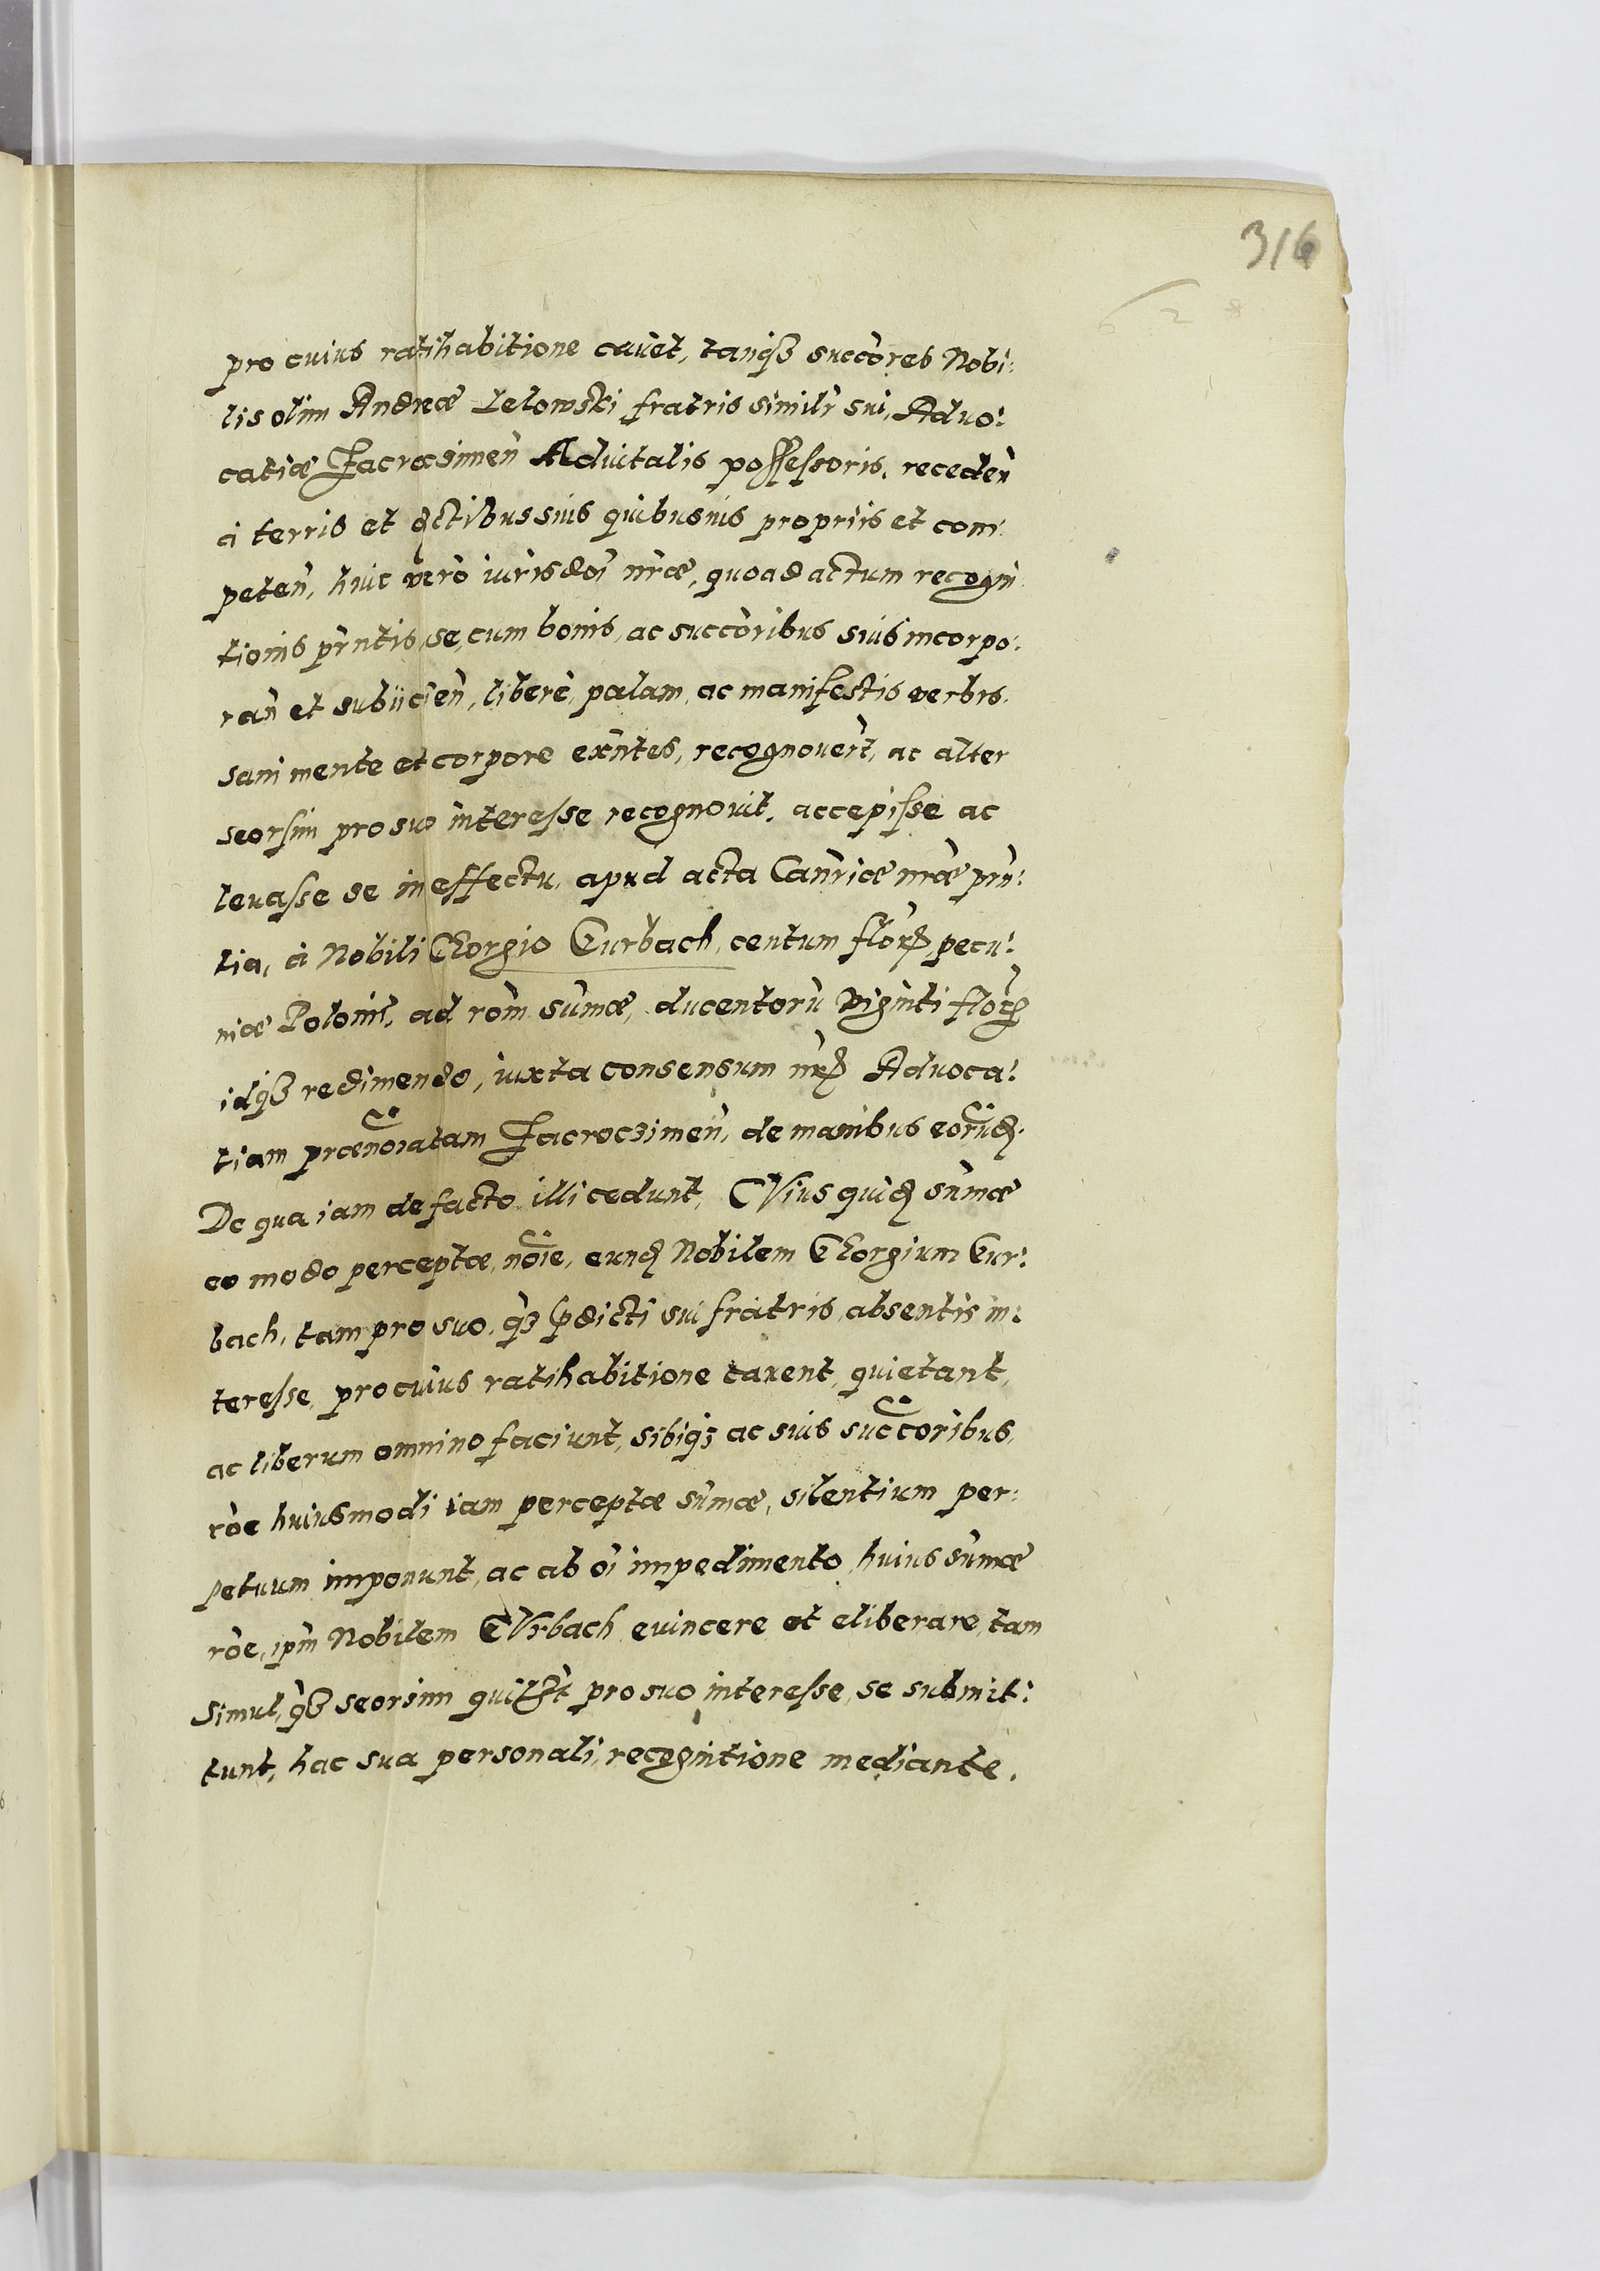 316
pro cuius ratihabitione cavet, tanqȝ succores Nobi:
lis olim Andreæ Lelowski fratris similr sui, Aduo:
catiæ Jacroczimen Aduitalis possessoris, receden
à terris et dctibus suis quibusuis propriis et com:
peten, huic vero iurisdoi nrae, quoad actum recogni
tionis prntis, se, cum bonis, ac succoribus suis incorpo:
ran et subiicien, liberè, palam, ac manifestis verbis.
sani mente et corpore exntes, recognouert, ac alter
seorsim pro suo interesse recognouit, accepisse ac
levasse se in effectu, apud acta Canriæ nræ prn:
tia, à Nobili GEorgio Eurbach, centum flor, pecu:
niæ Polonil, ad rom sumæ, ducentoru viginti flor
idqȝ redimendo, iuxta consensum nr Aduoca:
tiam prænoiatam Jacroczimen, de manibus eorud.
De qua iam de facto illi cedunt, CVius quid sumæ
eo modo perceptæ, noie, eund Nobilem GEorgium Eur:
bach, tam pro suo, qȝ pdicti sui fratris absentis in:
teresse, pro cuius ratihabitione cavent, quietant,
ac liberum omnino faciunt, sibiqȝ ac suis succoribus,
roe huiusmodi iam perceptæ sumæ, silentium per:
petuum imponunt, ac ab oi impedimento huius sumæ
roe, ipm Nobilem EVrbach evincere et eliberare, tam
simul, qȝ seorsim pro suo interesse, se submit:
tunt, hac sua personali recognitione mediante.